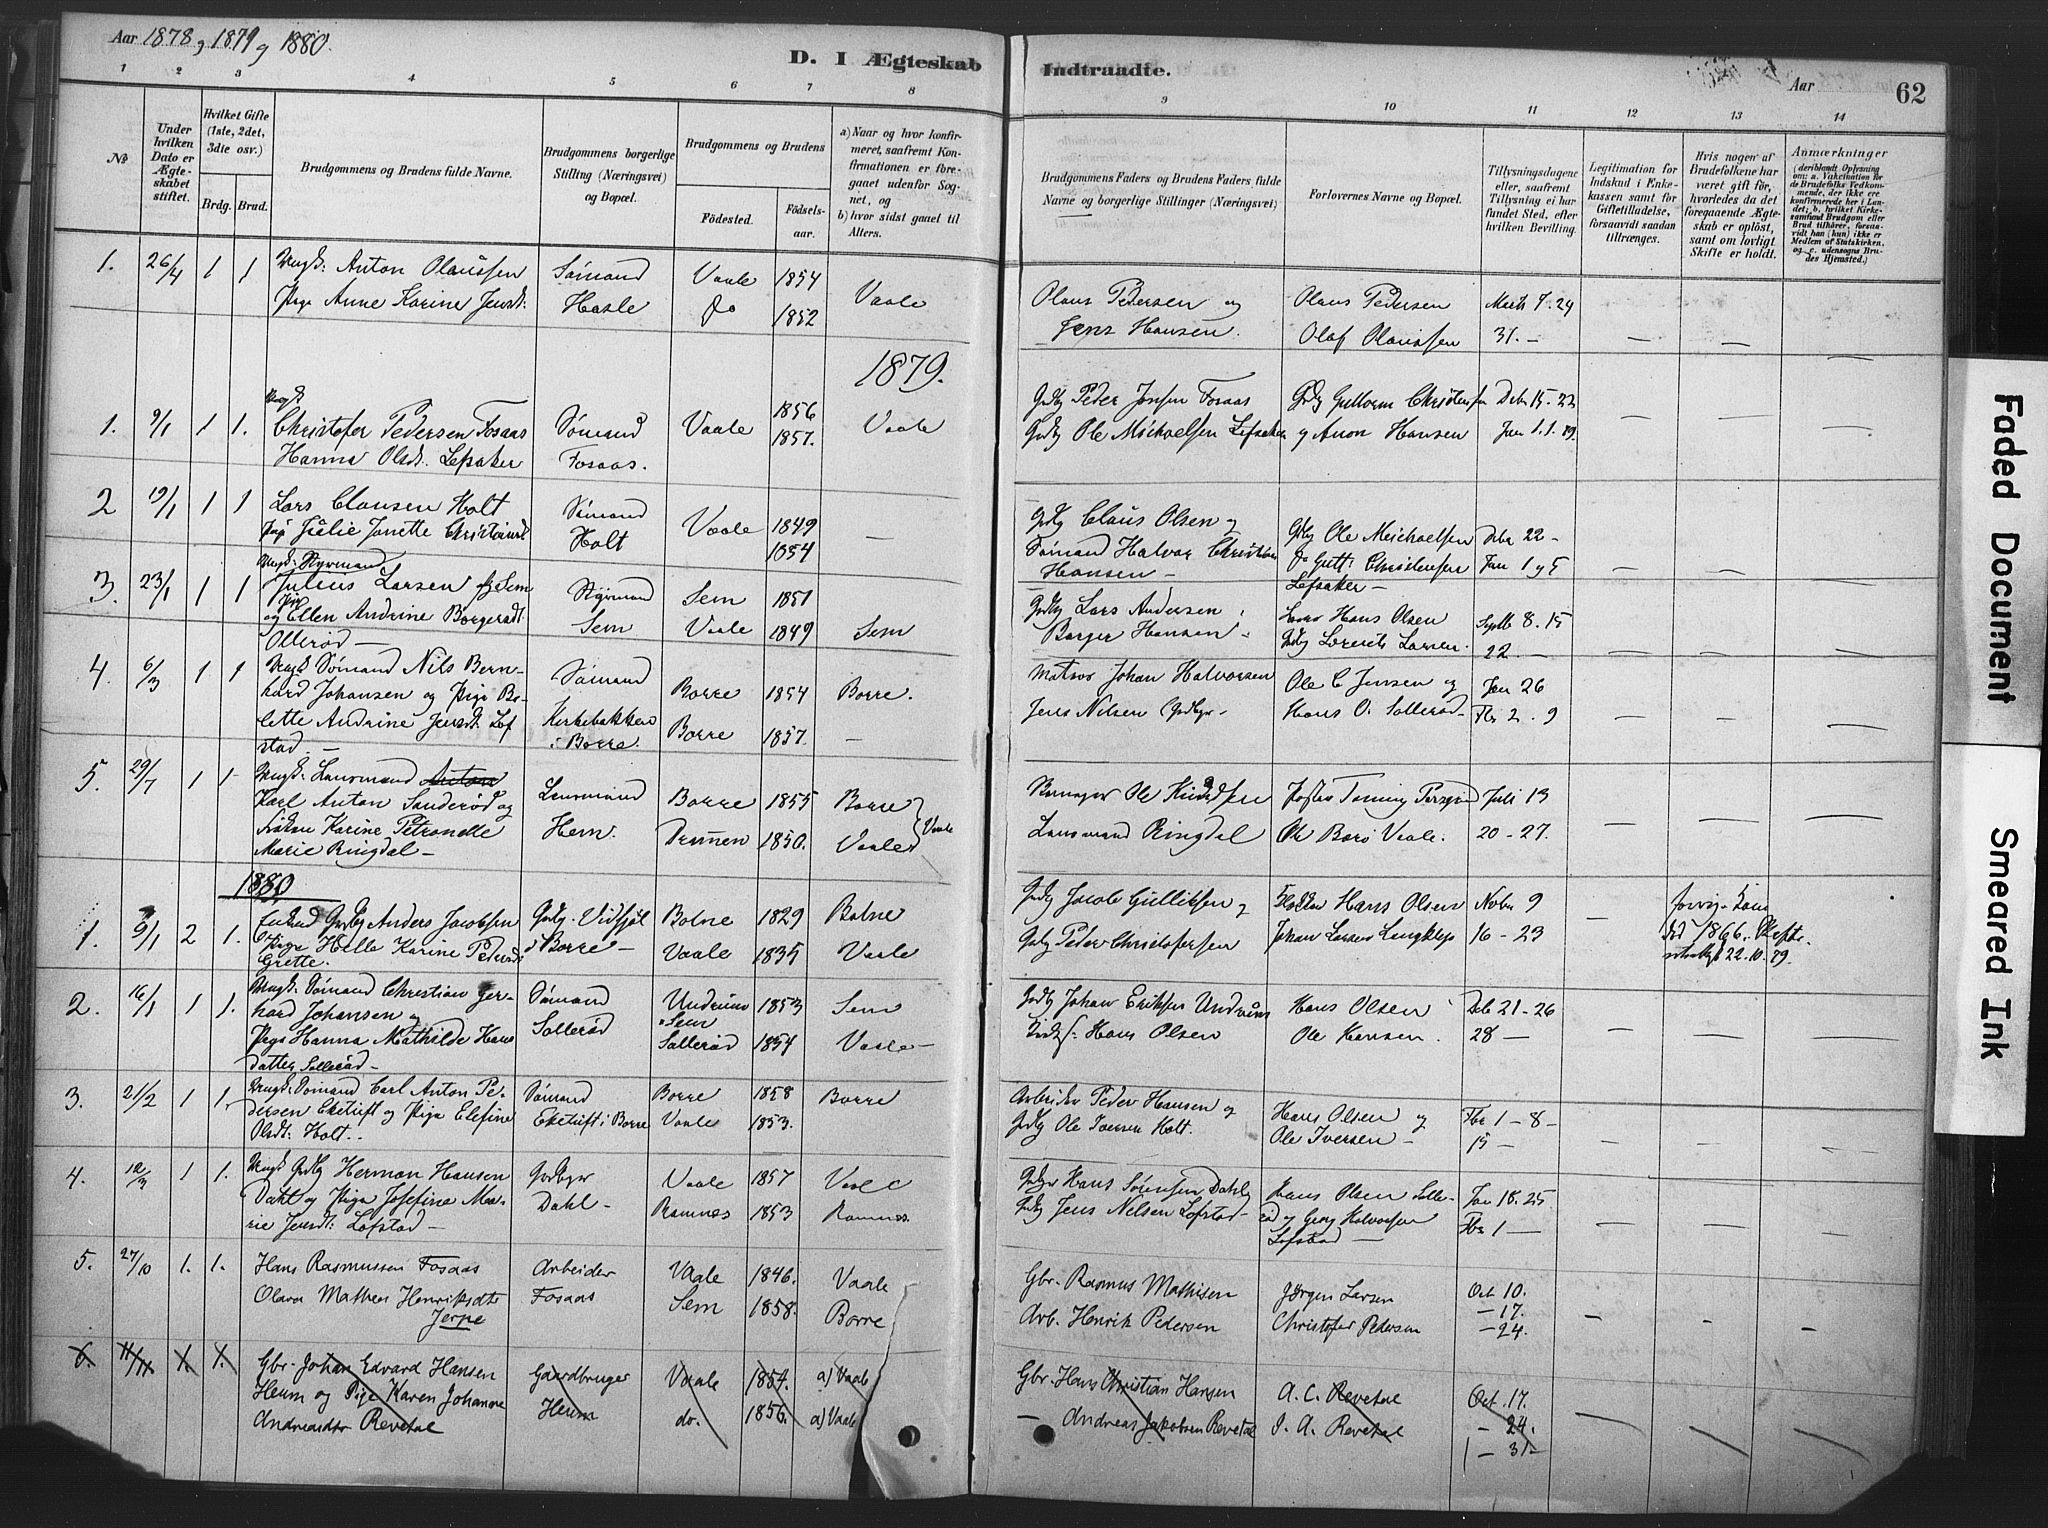 Aar 1878, 1879 og 1880.
D. I Ægteskab
Indtraadte.
Aar
62
1 2 3 4 5 6 7 8
9 10 11 12 13 14
No
Under hvilken Dato er Ægteskabet stiftet.
Hvilket Gifte (1ste, 2det, 3die osv.)
Brdg. Brud.
Brudgommens og Brudens fulde Navne.
Brudgommens borgerlige Stilling (Næringsvei) og Bopæl.
Brudgommens og Brudens
Fødested. Fødselsaar.
a) Naar og hvor konfirmeret, saafremt Konfirmationen er foregaaet udenfor Sognet, og
b) hvor sidst gaaet til Alters.
Brudgommens Faders og Brudens Faders fulde Navne og borgerlige Stillinger (Næringsvei)
Forlovernes Navne og Bopæl.
Tillysningsdagene eller, saafremt Tillysning ei har fundet Sted, efter hvilken Bevilling.
Legitimation for Indskud i Enkekassen samt for Giftetilladelse, forsaavidt saadan tiltrænges.
Hvis nogen af Brudefolkene har været gift før, hvorledes da det foregaaende Ægteskab er opløst, samt om lovligt Skifte er holdt.
Anmærkninger
(deriblandt Oplysning om: a. Vakcination for de Brudefolks Vedkommende, der ikke ere konfirmerede her i Landet; b. hvilket Kirkesamfund Brudgom eller Brud tilhører, forsaavidt han (hun) ikke er Medlem af Statskirken, og c. udensogns Brudes Hjemsted.)
1. 26/4 1 1 Ungk: Anton Olaussen Sømand Vaale 1854
Pige Anne Karine Jensdt. Hasle Do 1852 Vaale
Olaus Pedersen og Olaus Pedersen Marts 7. 24
Jens Hansen. Olaf Olaussen 31. —
1879.
Ungk
1. 9/1 1 1. Christofer Pedersen Fosaas Sømand Vaale 1856 Vaale
Hanna Olsdt. Lefsaker Fosaas. 1857.
Gdbg Peder Jonsen Fosaas Gdbg Guttorm Christensen Debr 15. 22
Gdbg Ole Michaelsen Lefsaker og Anon Hansen Jan 1. 1. 79.
2 19/1 1 1 Lars Clausen Holt Sømand Vaale 1849 —
Pige Julie Janette Christiansdt Holt 1854
Gdbg Claus Olsen og Gdbg Ole Michaelsen Debr 22 —
Sømand Halvor Christian Do Gutt: Christensen Jan 1 og 5
Hansen — Lefsaker —
Ungk: Styrmand
3. 23/1 1 1 Julius Larsen af Sem Styrmand Sem 1851
Pige
og Ellen Andrine Borgersdt. Sem Vaale 1849 Sem
Ollerød —
Gdbg Lars Andersen Hans Olsen Septb 8. 15
Borger Hansen Gdbg Lorents Larsen. 22 —
4. 6/3 1 1 Ungk Sømand Nils Bern- Sømand Borre 1854 Borre.
hard Johansen og Pige Bo-
lette Andrine Jensdt. Løf Kirkebakken Borre 1857. —
stad. — i Borre.
Matros Johan Halvorsen Ole C Jensen og Jan 26
Jens Nilsen Gdbgr — Hans O. Sollerød Fbr 2. 9
5. 29/7 1 1 Ungk: Lensmand Anton
Karl Anton Sanderød og Lensmand Borre 1855 Borre
Frøken Karine Petronelle Hem. Drammen 1850. Vaale Vaale
Marie Ringdal —
Ole Knudsen Juli 13
Lensmand Ringdal Ole Vaale. 20 - 27.
1880
1. 9/1 2 1. Enkmd Gdbg Anders Jacobsen Gdbg. Botne 1829 Botne
Pige Helle Karine Pedersdt i Borre — Vaale 1835 Vaale
Grette.
Gdbg Jacob Gulliksen og Hans Olsen Novbr 9
Gdbg Peder Christofersen Johan Larsen 16 - 23
død 1866. Skifte
22.10.79.
2. 16/1 1 1. Ungk: Sømand Christian Ger- Sømand Undrum 1853 Sem
hard Johansen og Sollerød Sem
Pige Hanna Mathilde Hans Sollerød 1854 Vaale —
datter Sollerød —
Gdbg Johan Eriksen Undrum Hans Olsen Deb 21 - 26
Hans Olsen Ole Hansen. 28 —
3. 21/2 1 1. Ungk: Sømand Carl Anton Pe- Sømand Borre 1858 Borre
dersen Eketuft og Pige Elefine Eketuft i Borre Vaale 1853.
Olsdt: Holt.
Arbeider Peder Hansen og Hans Olsen og Fbr 1 - 8 -
Gdbg Ole Iversen Holt. Ole Iversen — 15 —
4. 12/3 1 1. Ungk Gdbg Herman Hansen Gdbgr Vaale 1857 Vaale
Dahl og Pige Josefine Ma- Dahl — Ramnes 1853 Ramnes
rie Jensdt: Løfstad —
Gdbgr Hans Sørensen Dahl Hans Olsen Solle- Jan 18. 25
Gdbg Jens Nilsen Løfstad — rød og Georg Halvorsen Fbr 1 —
Løfstad —
5. 27/10 1. 1. Hans Rasmussen Fosaas Arbeider Vaale 1846. Vaale
Olava Mathea Henriksdtr Fosaas Sem 1858. Borre
Jerpe
Gbr. Rasmus Mathisen Jørgen Larsen Oct 10.
Arb. Henrik Pedersen Christofer Pedersen — 17.
— 24.
6. 11/11 1. 1. Gbr. Johan Edvard Hansen Gaardbruger Vaale 1854. a) Vaale
Heum og Pige Karen Johanne Heum do. 1856. a) Vaale
Andreasdtr Revetal
Gbr. Hans Christian Hansen A. C. Revetal Oct. 17.
— Andreas Jakobsen Revetal J. A. Revetal — 24.
— 31 —
Faded Document
Smeared Ink